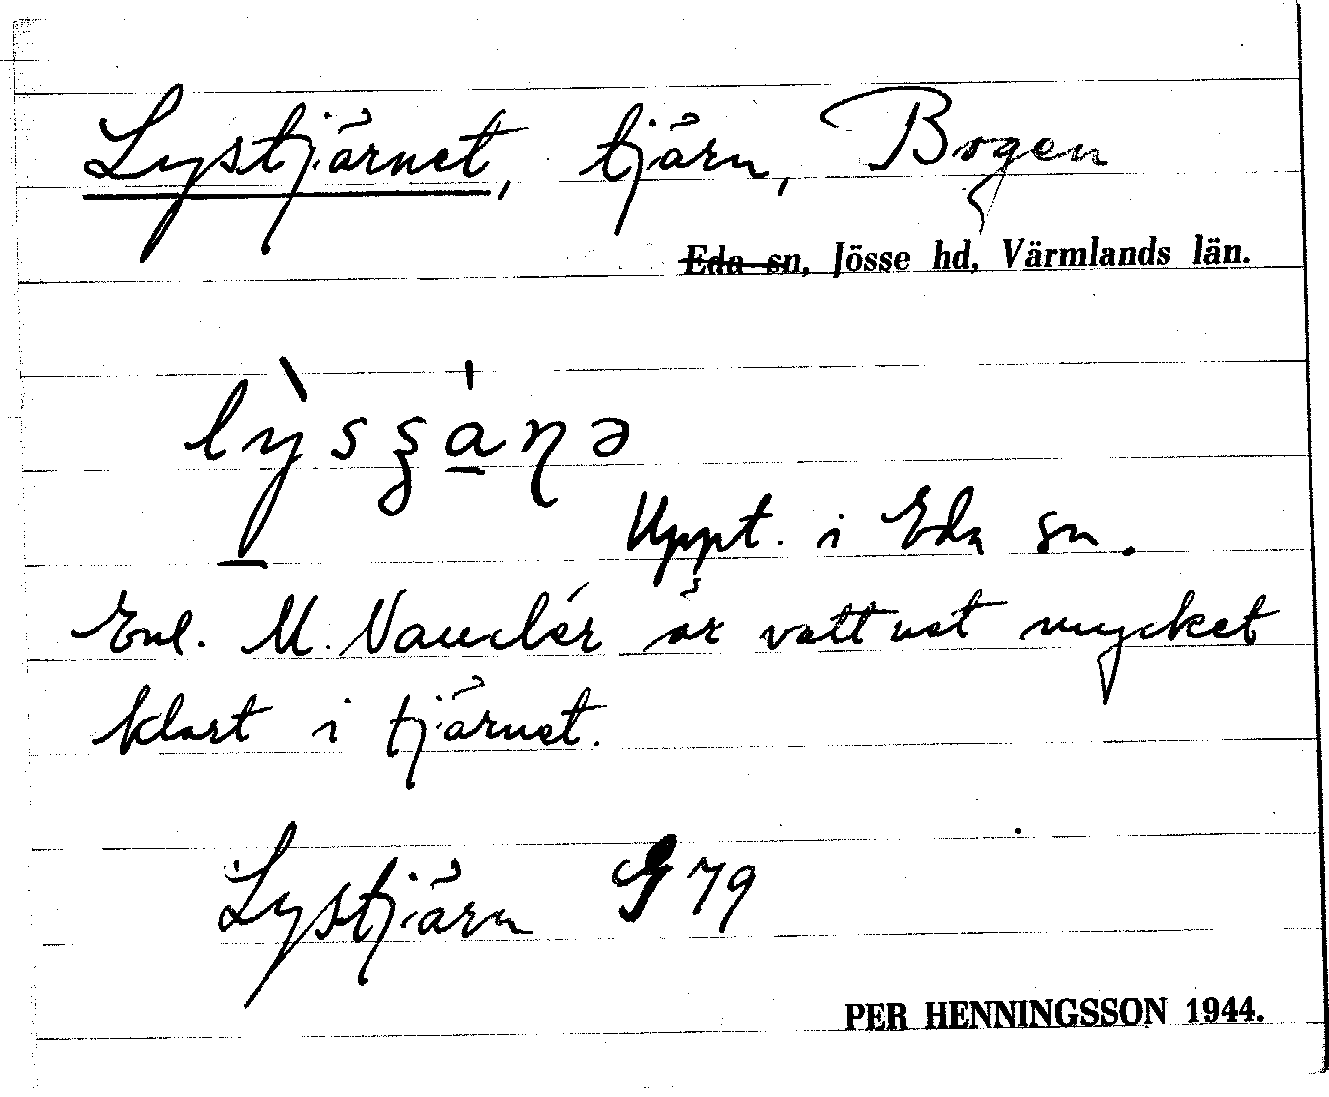 Lystjärnet, tjärn, Bogen
Eda sn, Jösse hd, Värmlands län.
lỳsʂánə
Uppt. i Eda sn.
Enl. M. Nauclér är vattnet mycket
klart i tjärnet.
Lystjärn G 79
PER HENNINGSSON 1944.